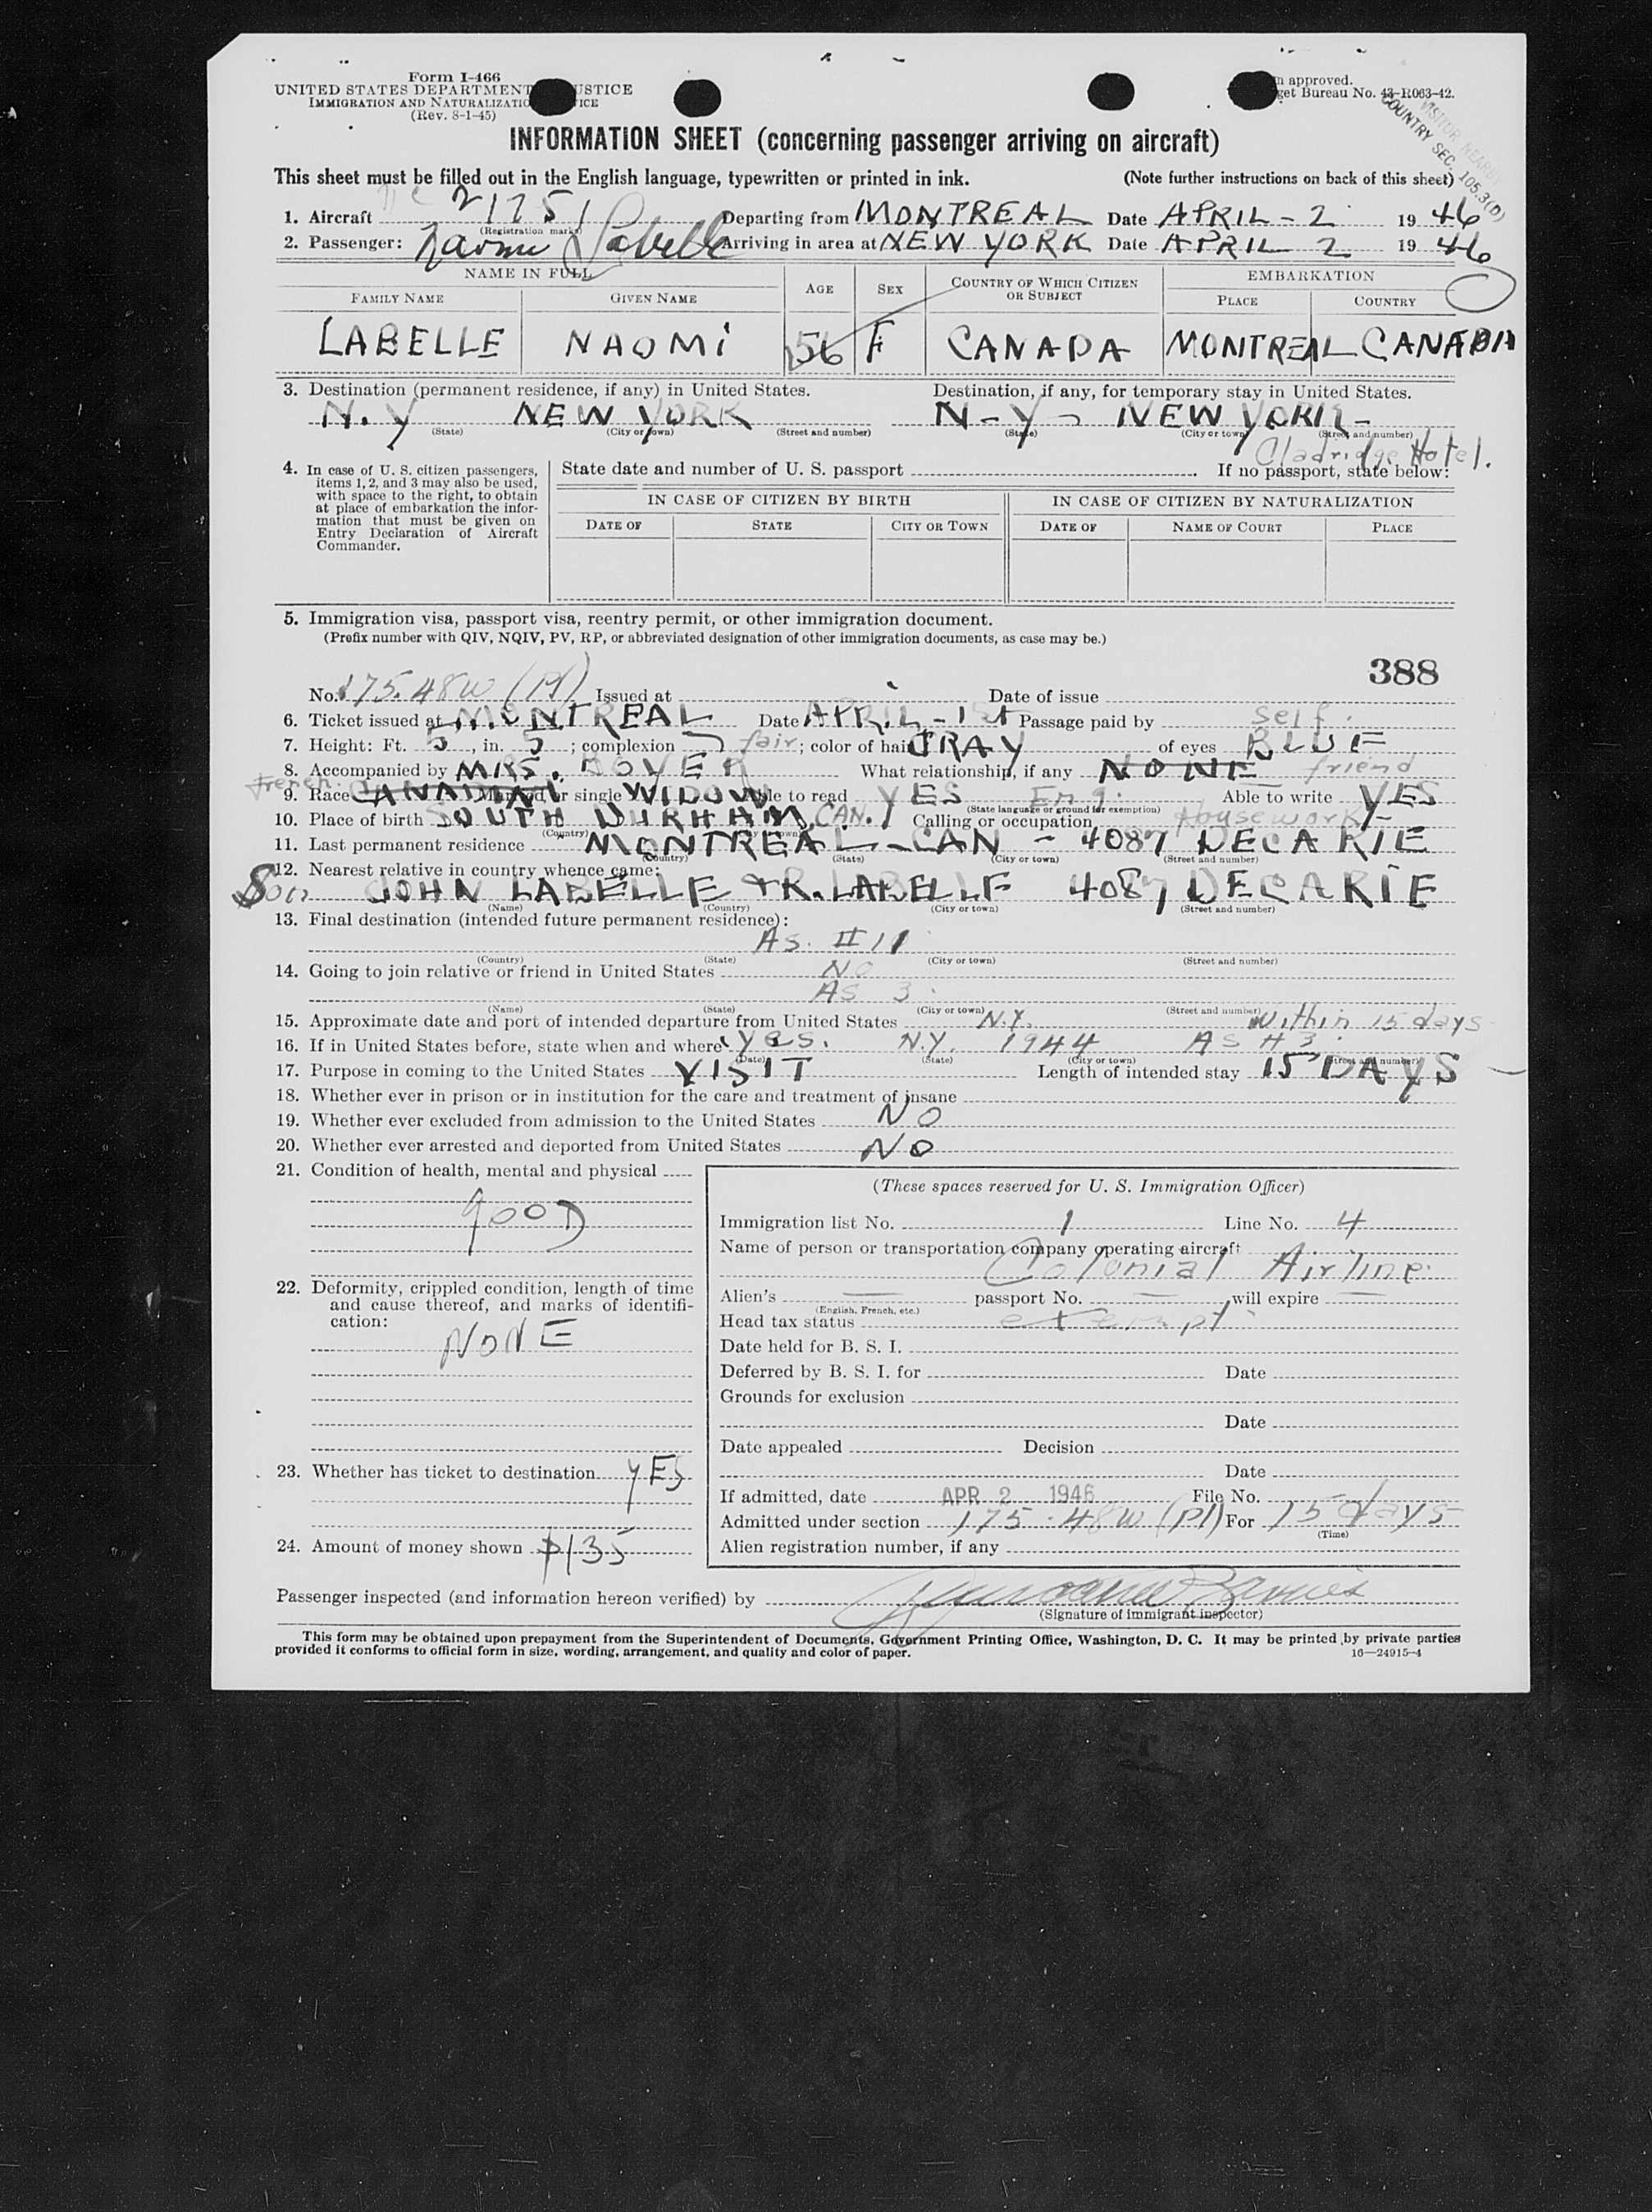 Form I-466
UNITED STATES DEPARTMENT JUSTICE
IMMIGRATION AND NATURALIZATION
(Rev. 8-1-45)
approved.
get Bureau No. 43-R063-42.
COUNTRY SEC. 105.3(D)
INFORMATION SHEET (concerning passenger arriving on aircraft)
This sheet must be filled out in the English language, typewritten or printed in ink. (Note further instructions on back of this sheet)
1. Aircraft NC 21751 Departing from MONTREAL Date APRIL - 2 1946
(Registration marks)
2. Passenger: Naomi Labelle Arriving in area at NEW YORK Date APRIL 2 1946
NAME IN FULL AGE SEX COUNTRY OF WHICH CITIZEN OR SUBJECT EMBARKATION
FAMILY NAME GIVEN NAME PLACE COUNTRY
LABELLE NAOMI 56 F CANADA MONTREAL CANADA
3. Destination (permanent residence, if any) in United States. Destination, if any, for temporary stay in United States.
N.Y NEW YORK N-Y - NEW YORK -
(State) (City or town) (Street and number) (State) (City or town) (Street and number)
Cladridge Hotel.
4. In case of U. S. citizen passengers, items 1, 2, and 3 may also be used, with space to the right, to obtain at place of embarkation the information that must be given on Entry Declaration of Aircraft Commander.
State date and number of U. S. passport If no passport, state below:
IN CASE OF CITIZEN BY BIRTH IN CASE OF CITIZEN BY NATURALIZATION
DATE OF STATE CITY OR TOWN DATE OF NAME OF COURT PLACE
5. Immigration visa, passport visa, reentry permit, or other immigration document.
(Prefix number with QIV, NQIV, PV, RP, or abbreviated designation of other immigration documents, as case may be.)
388
No. 175.48W (Pl) Issued at Date of issue
6. Ticket issued at MONTREAL Date APRIL - 1st Passage paid by Self.
7. Height: Ft. 5, in. 5; complexion fair; color of hair GRAY of eyes BLUE
8. Accompanied by MRS. BOYER What relationship, if any NONE friend
French
9. Race CANADIAN Married or single WIDOW Able to read YES Eng. Able to write YES
(State language or ground for exemption)
10. Place of birth SOUTH DURHAM, CAN. Calling or occupation Housework
(Country)
11. Last permanent residence MONTREAL - CAN - 4087 DECARIE
(Country) (State) (City or town) (Street and number)
12. Nearest relative in country whence came:
Son JOHN LABELLE & R. LABELLE 4087 DECARIE
(Name) (Country) (City or town) (Street and number)
13. Final destination (intended future permanent residence):
As # 11
(Country) (State) (City or town) (Street and number)
14. Going to join relative or friend in United States NO
As 3.
(Name) (State) (City or town) (Street and number)
15. Approximate date and port of intended departure from United States N.Y. within 15 days
16. If in United States before, state when and where yes. N.Y. 1944 As # 3.
(Date) (State) (City or town) (Street and number)
17. Purpose in coming to the United States VISIT Length of intended stay 15 DAYS
18. Whether ever in prison or in institution for the care and treatment of insane
19. Whether ever excluded from admission to the United States NO
20. Whether ever arrested and deported from United States NO
21. Condition of health, mental and physical
gooD
22. Deformity, crippled condition, length of time and cause thereof, and marks of identification:
NONE
23. Whether has ticket to destination YES
24. Amount of money shown $135
(These spaces reserved for U. S. Immigration Officer)
Immigration list No. 1 Line No. 4
Name of person or transportation company operating aircraft
Colonial Airline
Alien's passport No. will expire
(English, French, etc.)
Head tax status exempt
Date held for B. S. I.
Deferred by B. S. I. for Date
Grounds for exclusion
Date
Date appealed Decision
Date
If admitted, date APR 2 1946 File No.
Admitted under section 175.48W (Pl) For 15 days
(Time)
Alien registration number, if any
Passenger inspected (and information hereon verified) by
(Signature of immigrant inspector)
This form may be obtained upon prepayment from the Superintendent of Documents, Government Printing Office, Washington, D. C. It may be printed by private parties
provided it conforms to official form in size, wording, arrangement, and quality and color of paper.
16—24915-4